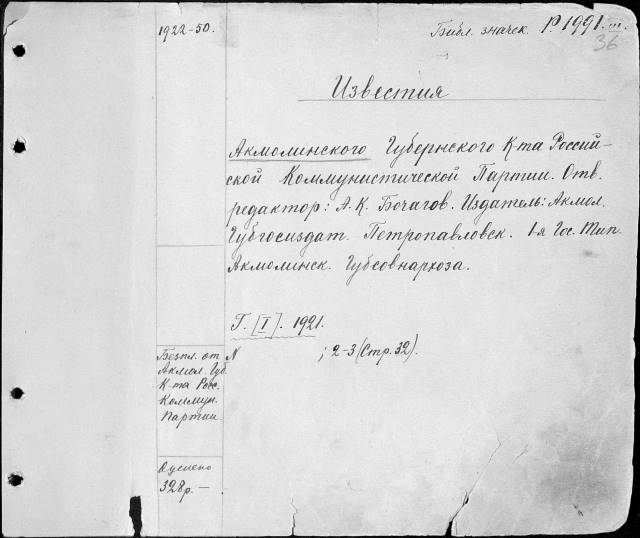 1922-50.
Библ. значек. P.1991.III.
36
Известия
Акмолинского Губернского К-та Россий-
ской Коммунистической Партии. Отв.
редактор: А. К. Бочагов. Издатель: Акмол.
Губгосиздат. Петропавловск. 1-я Гос. Тип.
Акмолинск. Губсовнархоза.
Г. [I]. 1921.
N ; 2-3 (Стр. 32).
Безпл. от
Акмол. Губ.
К-та Росс.
Коммун.
Партии
328р.—